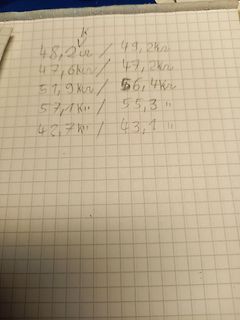 K
48,2Kr / 49,2Kr
47,6Kr / 47,2Kr
51,9Kr / 56,4Kr
57,1K" / 55,3 "
42,7K" / 43,1 "